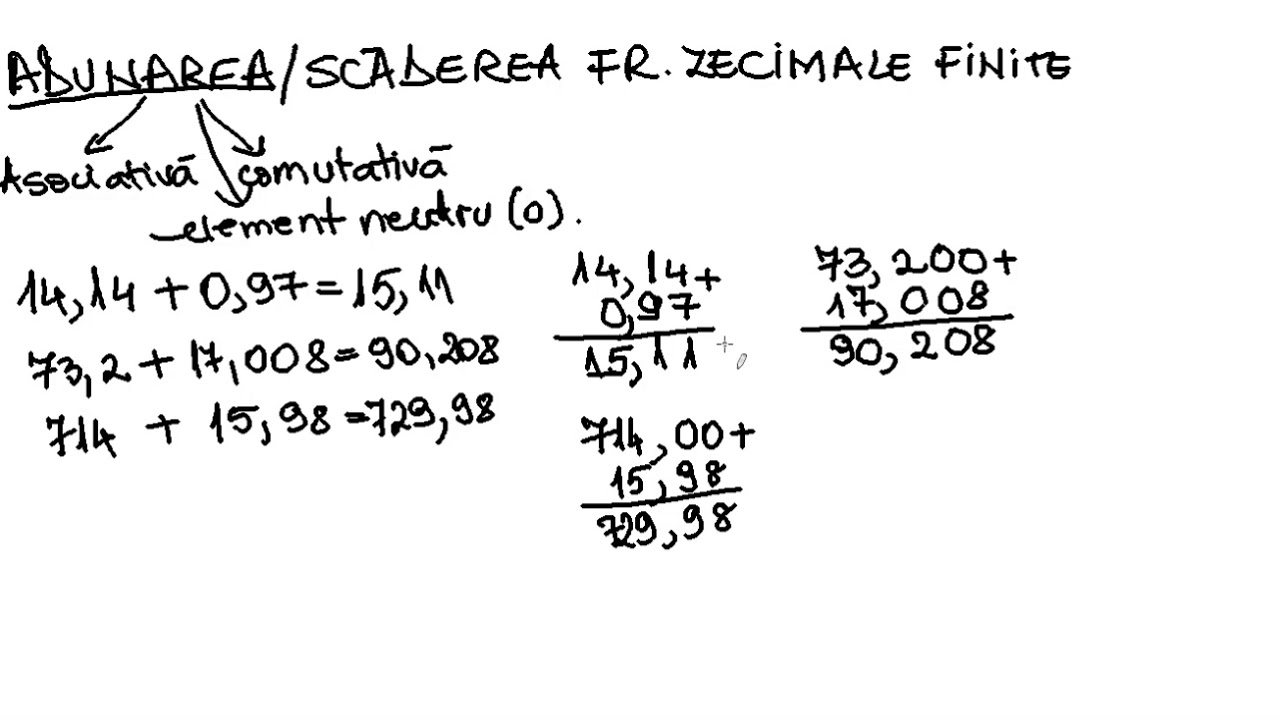 ADUNAREA/SCĂDEREA FR. ZECIMALE FINITE
Asociativă comutativă
element neutru (0).
14,14 + 0,97 = 15,11
73,2 + 17,008 = 90,208
714 + 15,98 = 729,98
14,14+
0,97
15,11
73,200+
17,008
90,208
714,00+
15,98
729,98